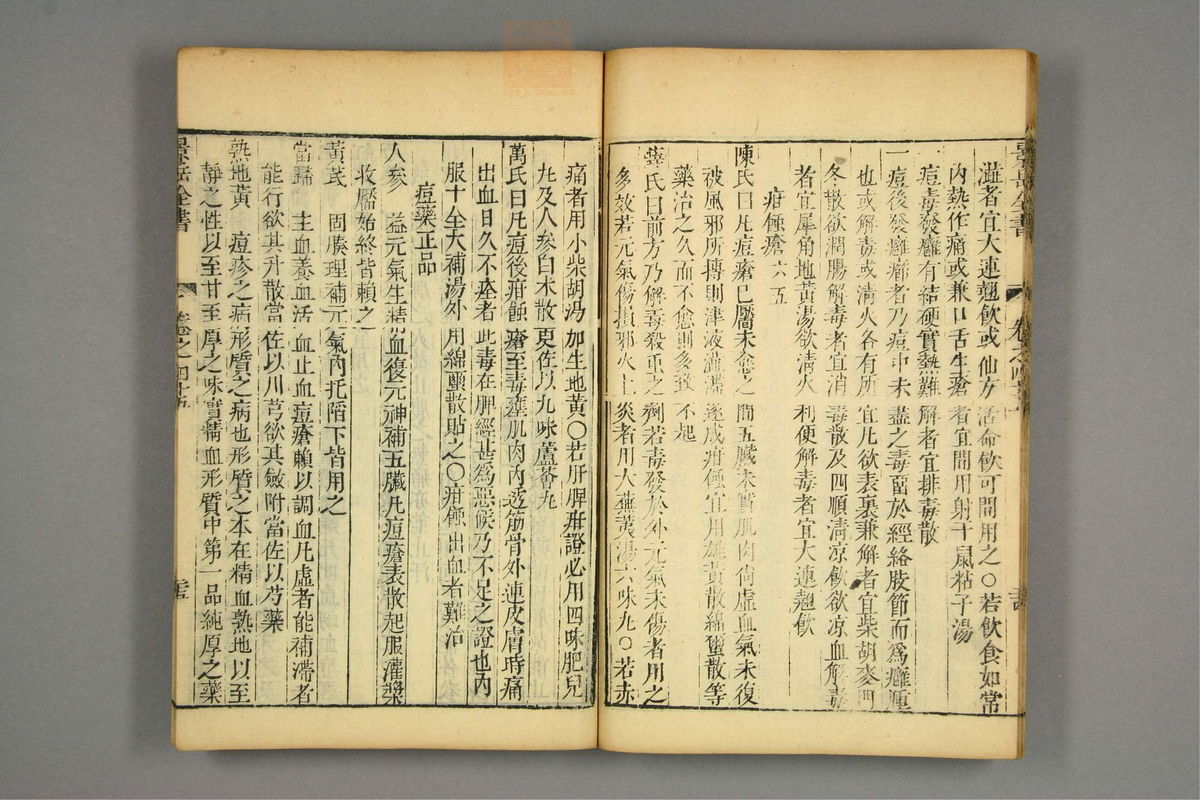 澁者宜大連翹飲或仙方活命飲可間用之○若飲食如常
內熱作痛或兼口舌生瘡者宜間用射干鼠粘子湯
痘毒發癰有結硬實熱難解者宜排毒散
一痘後發癰癤者乃痘中未盡之毒畱於經絡肢節而為癰腫
也或解毒或清火各有所宜凡欲表裏兼解者宜柴胡麥門
冬散欲潤腸解毒者宜消毒散及四順清凉飲欲凉血解毒
者宜犀角地黃湯欲清火利便解毒者宜大連翹飲
痘疳瘡六五
陳氏曰凡痘瘡已靨未愈之間五臟未實肌肉尙虛血氣未復
被風邪所搏則津液澁滯遂成疳蝕宜用雄黃散綿蠒散等
藥治之久而不愈則多致不起
薛氏曰前方乃解毒殺蟲之劑若毒發於外元氣未傷者用之
多效若元氣傷損邪火上炎者用大蕪荑湯六味丸○若赤
痛者用小柴胡湯加生地黃○若肝脾疳證必用四味肥兒
丸及人參白朮散更佐以九味蘆薈丸
萬氏曰凡痘後疳蝕瘡至毒壅肌肉內透筋骨外連皮膚時痛
出血日久不痊者此毒在脾經甚為惡候乃不足之證也內
服十全大補湯外用綿蠒散貼之○疳蝕出血者難治
痘藥正品
人參 益元氣生精血復元神補五臟凡痘瘡表散起服灌漿
收靨始終皆賴之
黃芪 固腠理補元氣內托陷下皆用之
當歸 主血養血活血止血痘瘡賴以調血凡虛者能補滯者
能行欲其升散當佐以川芎欲其斂附當佐以芍藥
熟地黃 痘疹之病形質之病也形質之本在精血熟地以至
靜之性以至甘至厚之味實精血形質中第一品純厚之藥
景岳全書